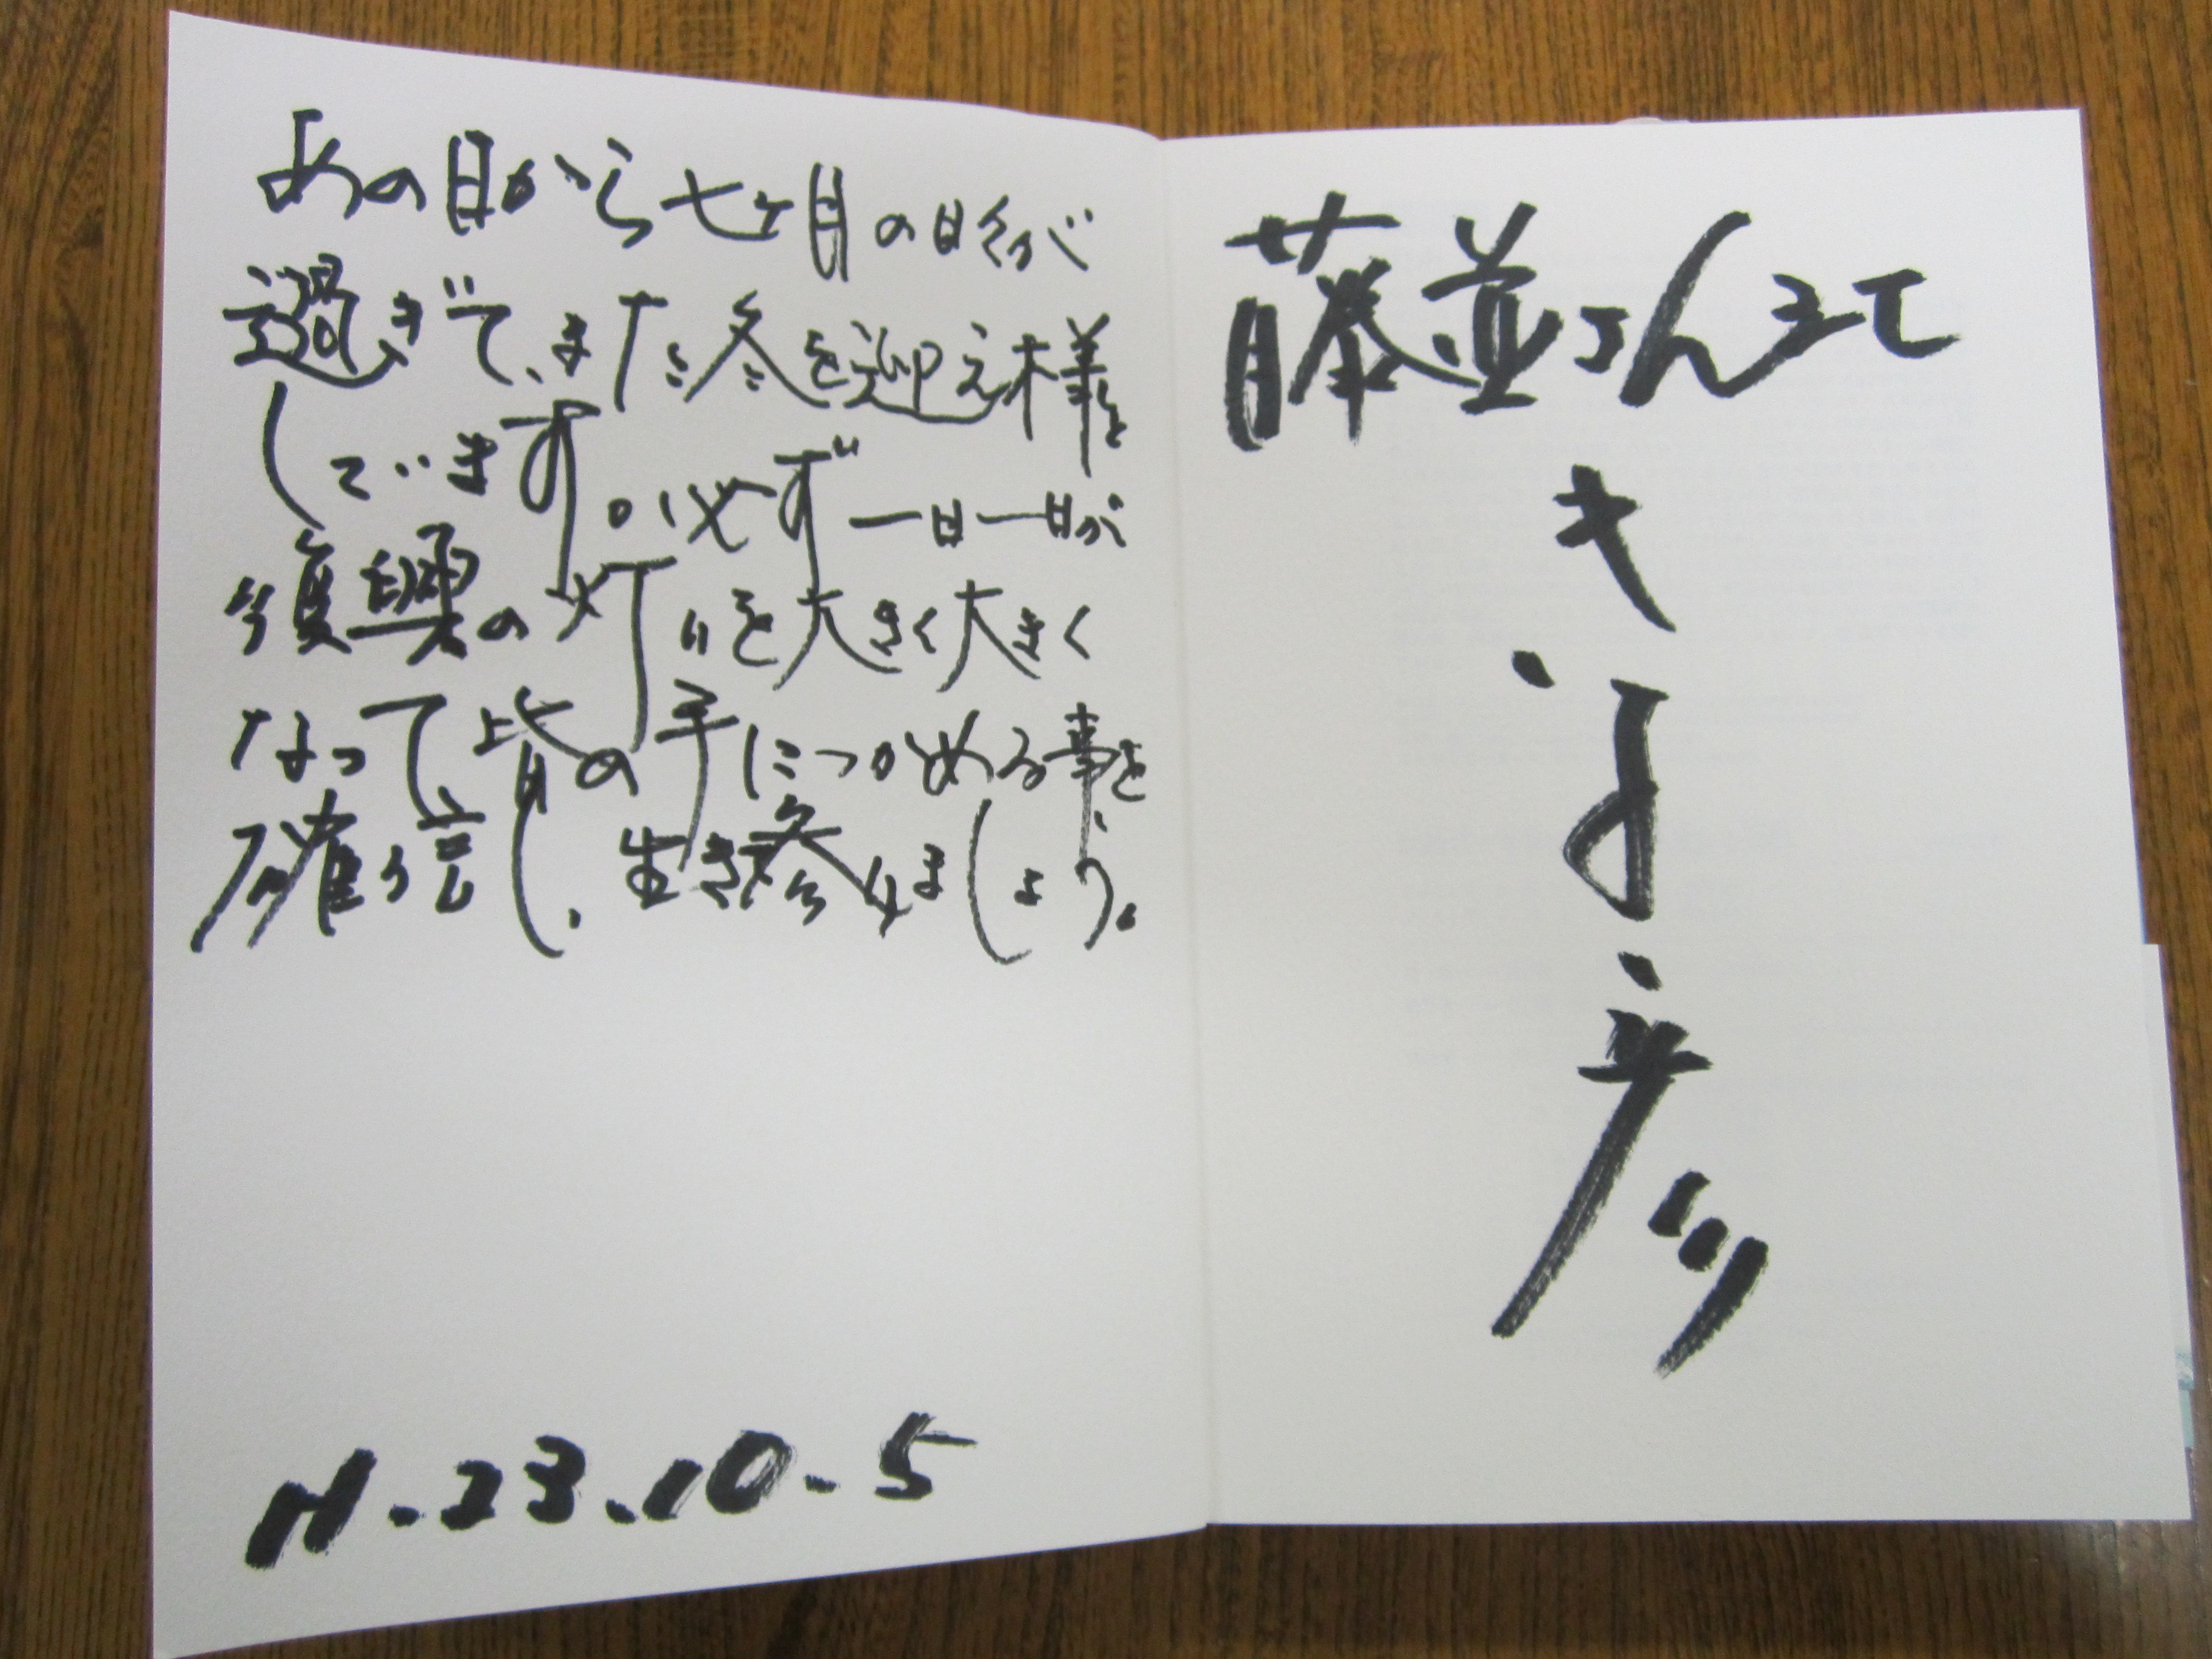 あの日から七ヶ月の日々が
過ぎて、また冬を迎え様と
しています。が必ず一日一日が
復興の灯りを大きく大きく
なって、皆の手につかめる事を
確信し、生き参りましょう。
H.23.10.5
藤並さん江